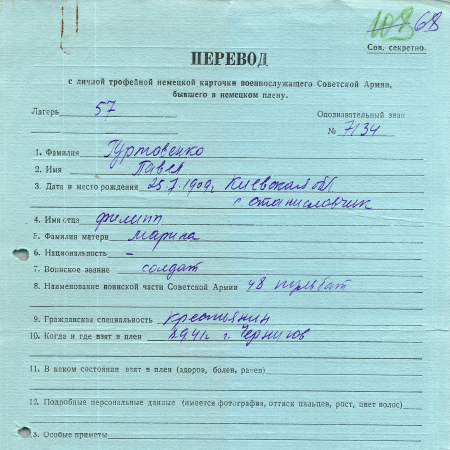 108 68
Сов. секретно.
ПЕРЕВОД
с личной трофейной немецкой карточки военнослужащего Советской Армии,
бывшего в немецком плену.
Лагерь 57 Опознавательный знак
№ 7134
1. Фамилия Гуртовенко
2. Имя Павел
3. Дата и место рождения 1909, Киевская обл
с. Станисловчик
4. Имя отца филипп
5. Фамилия матери марина
6. Национальность –
7. Воинское звание солдат
8. Наименование воинской части Советской Армии 48 пульбат
9. Гражданская специальность крестьянин
10. Когда и где взят в плен г. Чернигов
11. В каком состоянии взят в плен (здоров, болен, ранен)
12. Подробные персональные данные (имеется фотография, оттиск пальцев, рост, цвет волос)
13. Особые приметы